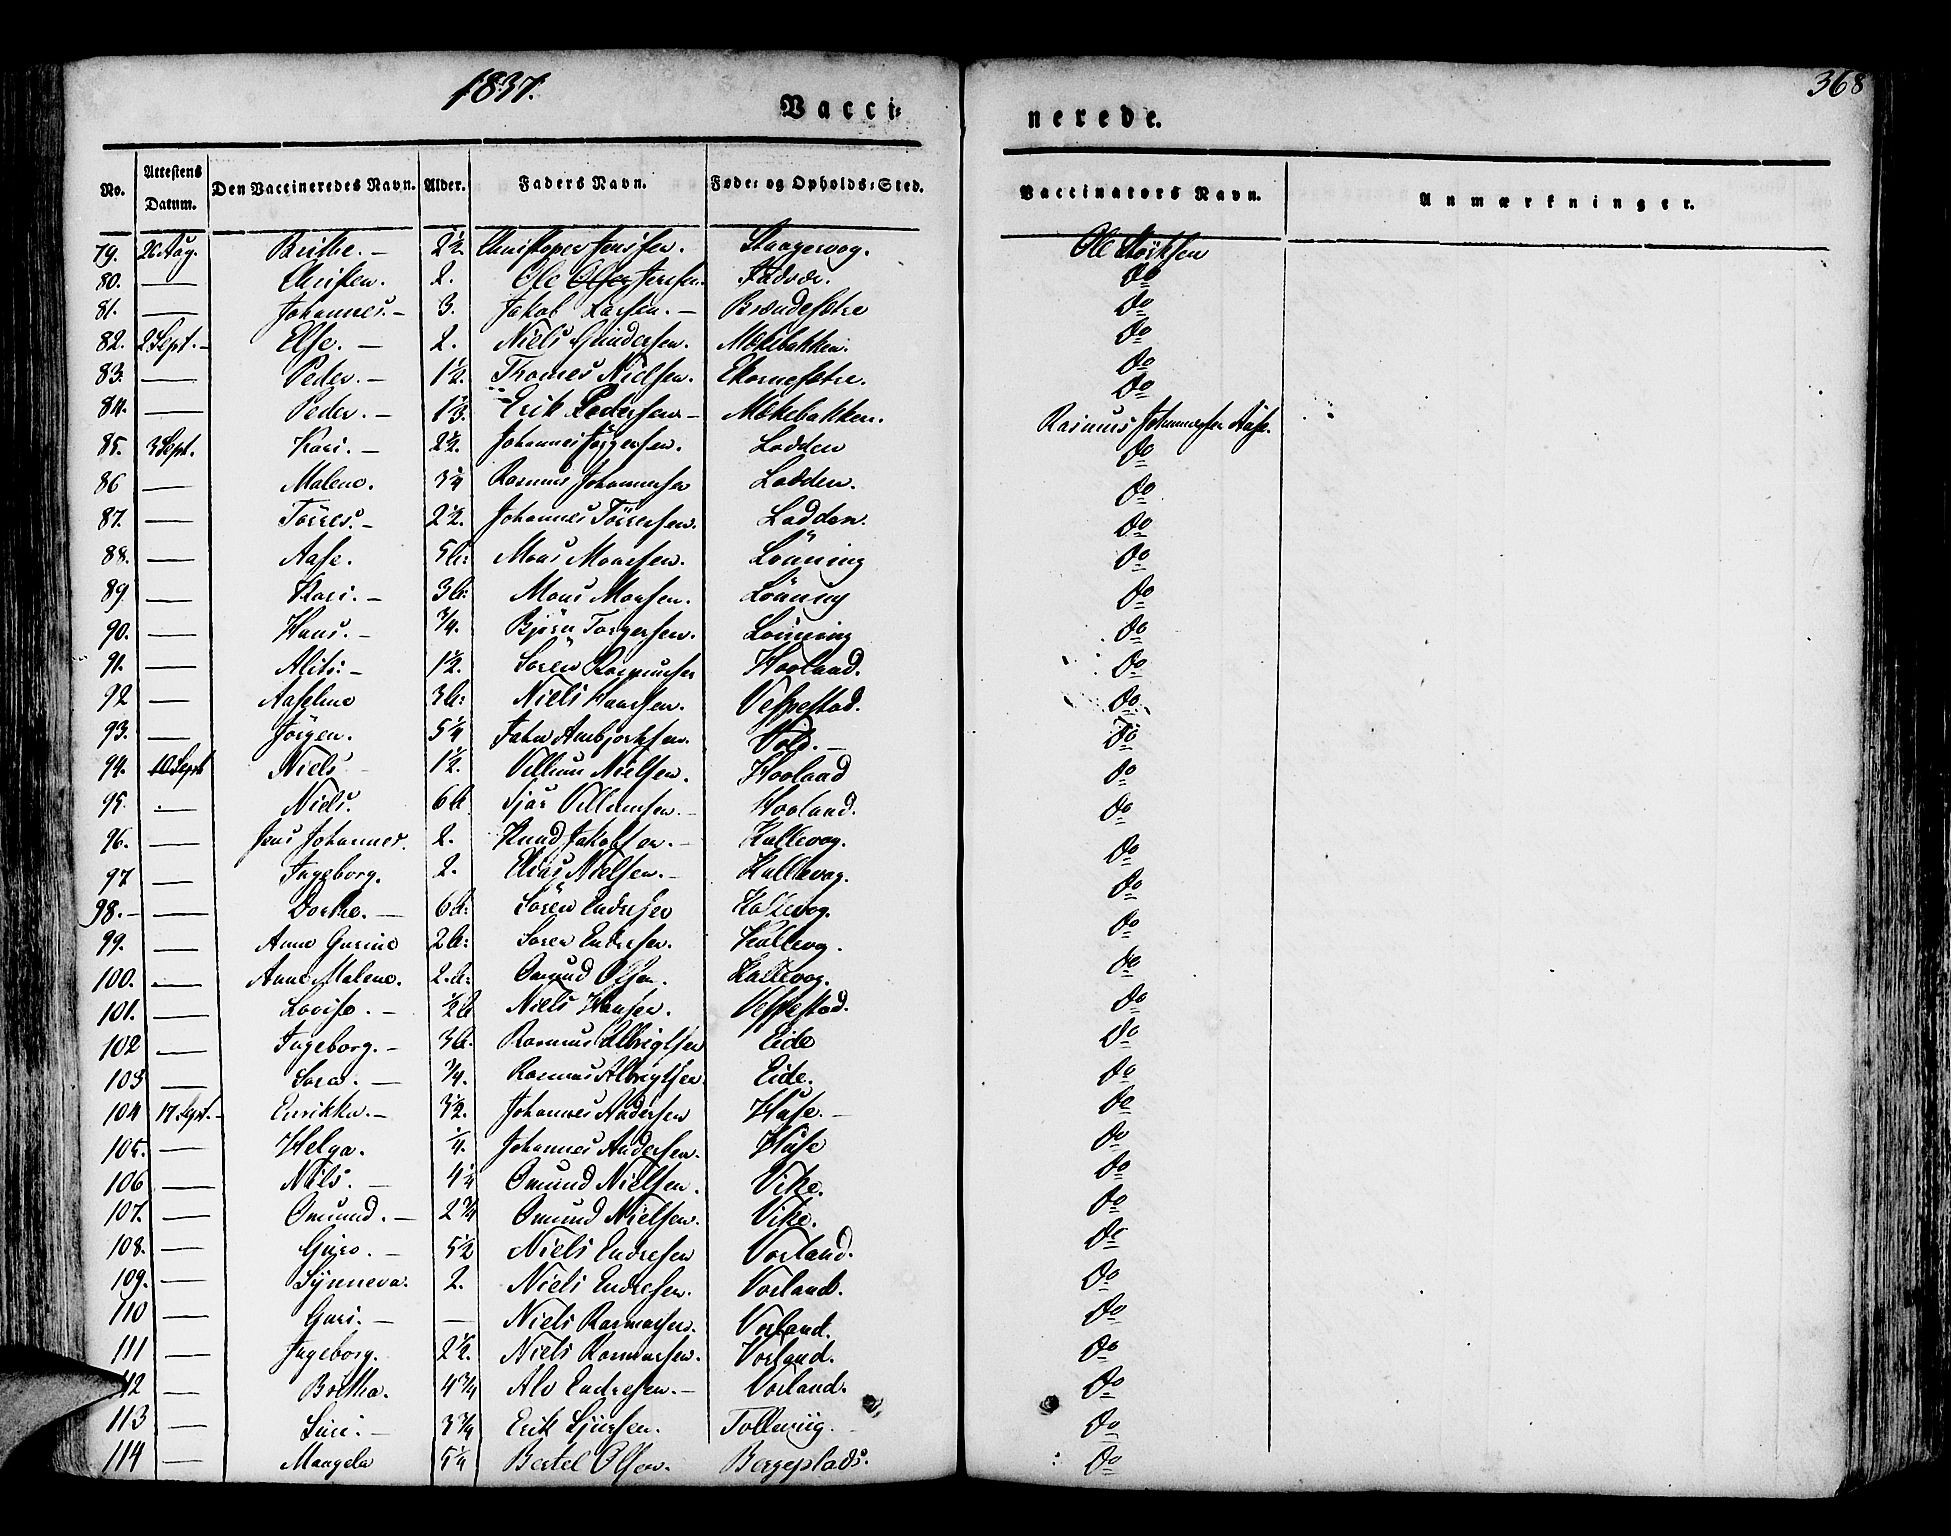 1837.
368
Vacci=
nerede.
No. Attestens Datum. Den Vaccineredes Navn. Alder. Faders Navn. Føde= og Opholds=Sted. Vaccinators Navn. Anmærkninger.
79. 26 Aug. Brithe. — 2½. Christopher Jensen. Staagevog. Ole
80. — Christen. 2. Ole Olsen Jensen. Do
81. — Johannes. — 3. Jakob Larsen. — Brændesetre Do
82. 2 Sept. — Else. — 2. Niels Gundersen. Møkebakken. Do
83. — Peder. — 1½. Thomes Nielsen. Ekornesetre. Do
84. — Peder. — 1⅓. Erik Pedersen — Møkebakken. Do
85. 3 Sept. Kari. — 2½. Johannes Jörgensen. Ladden Rasmus Johannesen Aase.
Do
86 — Malene. 3¼ Rasmus Johannesen Ladden. Do
87. — Törres. — 2½. Johannes Törresen. Ladden. Do
88. — Aase. 5 U: Mons Monsen. Lönning Do
89 — Kari. — 3 U: Mons Monsen. Lönning Do
90. — Hans. — ¾. Björn Torgersen. Lönning Do
91. — Alits: — 1½. Sören Rasmusen Hovland. Do
92 — Aaseline 3 U: Niels Hansen. Vespestad. Do
93. — Jörgen. 5¼ John Ambjørnsen. Vold. — Do
94. 10 Sept Niels 1½. Villum Nielsen. Hovland Do
95. — Niels. 6 U Sjur Villumsen. — Hovland. Do
96. — Jens Johannes. 2. Knud Jakobsen. — Kallevog. Do
97 — Ingeborg. 2. Elias Nielsen. — Kallevog. Do
98. — — Dorthe. — 6 U: Sören Endresen Kallevog. Do
99. — Anne Gurine 2 U: Soren Endresen. Kallevog. Do
100. — Anne Malene. 2. U: Omund Olsen. Kallevog. Do
101. — Lovise. — ½ U Niels Hansen. Vespestad. Do
102 — Ingeborg. — 3 U. Rasmus Albrigtsen Eide Do
103 — Sara. — ¾. Rasmus Albrigtsen. Eide. Do
104 17 Sept. — Enrikke. — 3½. Johannes Andersen Huse. — Do
105. — Helga. ¼. Johannes Andersen. Huse Do
106 — Niels. — 4¼ Omund Nielsen. Vike. Do
107. — Omund. — 2¾ Omund Nielsen. Vike. Do
108. — Guro. — 5½ Niels Endresen Vorland. Do
109. — Synneva. 2. Niels Endresen. Vorland. Do
110 — Guri. — — Niels Rasmusen. Vorland. Do
111 — Ingeborg. 2½. Niels Rasmusen. Vorland. Do
112 — Börtha. 4¾ Alv Endresen. — Vorland. Do
113 — Siri. — 3¾ Erik Sjursen. Tollevig. Do
114 — Mangela 5¼ Bertel Olsen. Bergeplads. Do